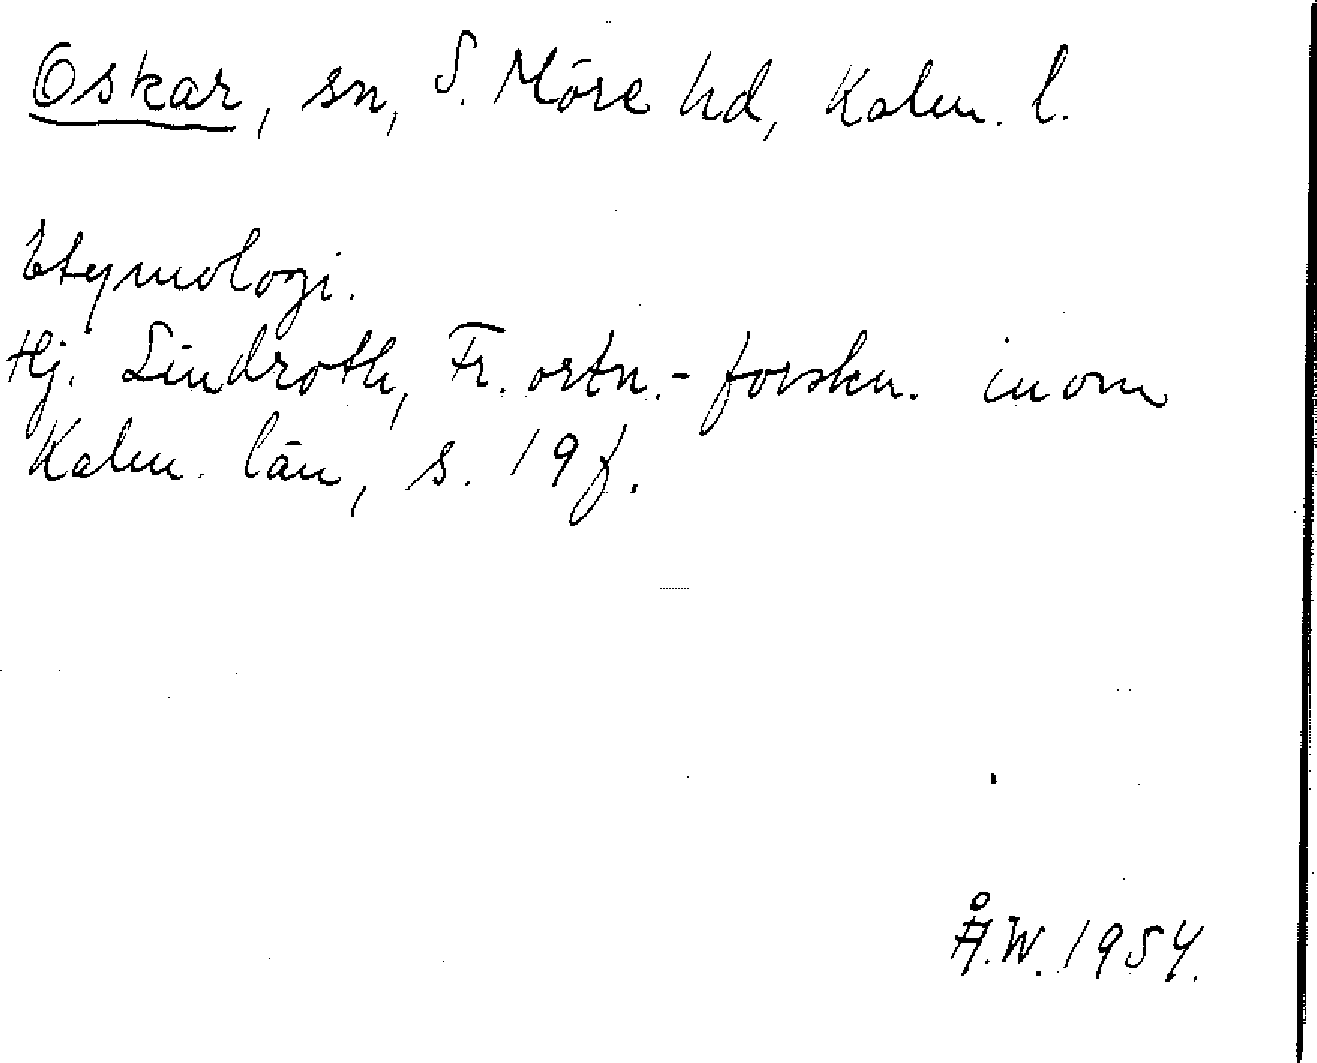 Oskar, sn, S. Möre hd, Kalm. l.
Etymologi.
Hj. Lindroth, Fr. ortn.-forskn. inom
Kalm. län, s. 19 f.
Å.W. 1954.